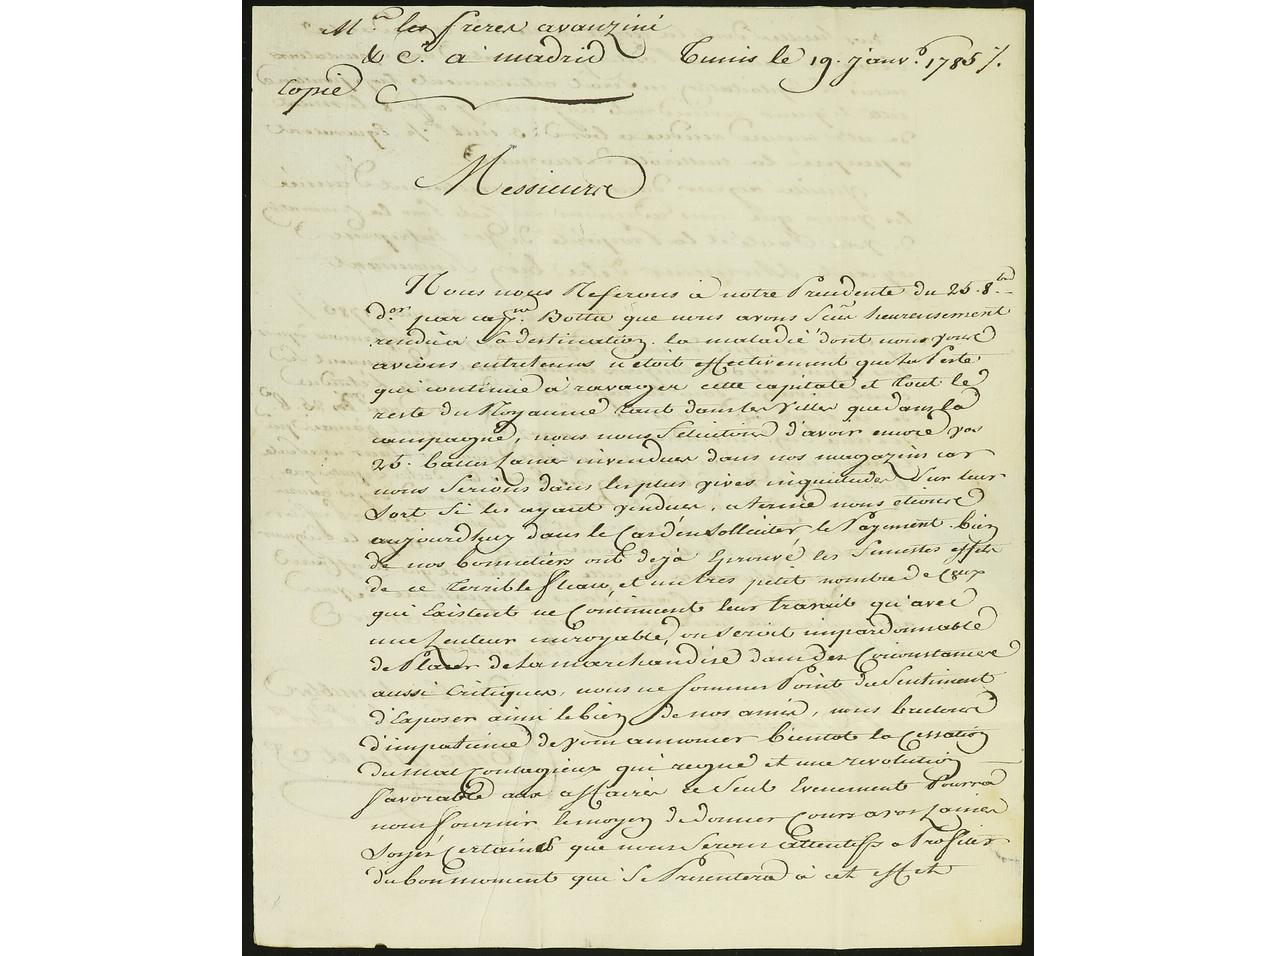 Mrs. les freres avanzini
& Ce. a madrid Tunis le 19. janvo. 1785 /.
Copie
Messieurs
Nous nous Referons à notre Precedente du 25. 8bre
der par capne Botta que nous avons Sçu heureusement
rendu à Sa destination. la maladie dont nous vous
avions entretenus n'etoit effectivement que La Peste
qui continue à ravager cette capitale et tout le
reste du Royaume tant dans les villes que dans la
campagne, nous nous felicitons d'avoir encore vos
25. balles Laines invendues dans nos magazins car
nous Serions dans les plus vives inquietudes Sur leur
Sort Si les ayant vendues, a terme nous etions
aujourdhuy dans le Cas d'en Solliciter le Payement. bien
de nos bonnetiers ont deja Eprouvé les funestes effets
de ce terrible fleau, et un tres petit nombre de Ceux
qui Existent ne Continuent leur travail qu'avec
une Lenteur incroyable, on Seroit impardonnable
de Placer de La marchandise dans des Circonstances
aussi Critiques, nous ne Sommes Point du Sentiment
d'Exposer ainsi le bien de nos amis, nous brulons
d'impatience de vous annoncer bientot la Cessation
du mal Contagieux qui regne et une revolution
favorable aux affaires ce Seul Evenement Pourra
nous fournir le moyen de donner Cours a vos Laines
Soyés Certains que nous Serons attentifs a Profiter
du bon moment qui Se Presentera à cet effet